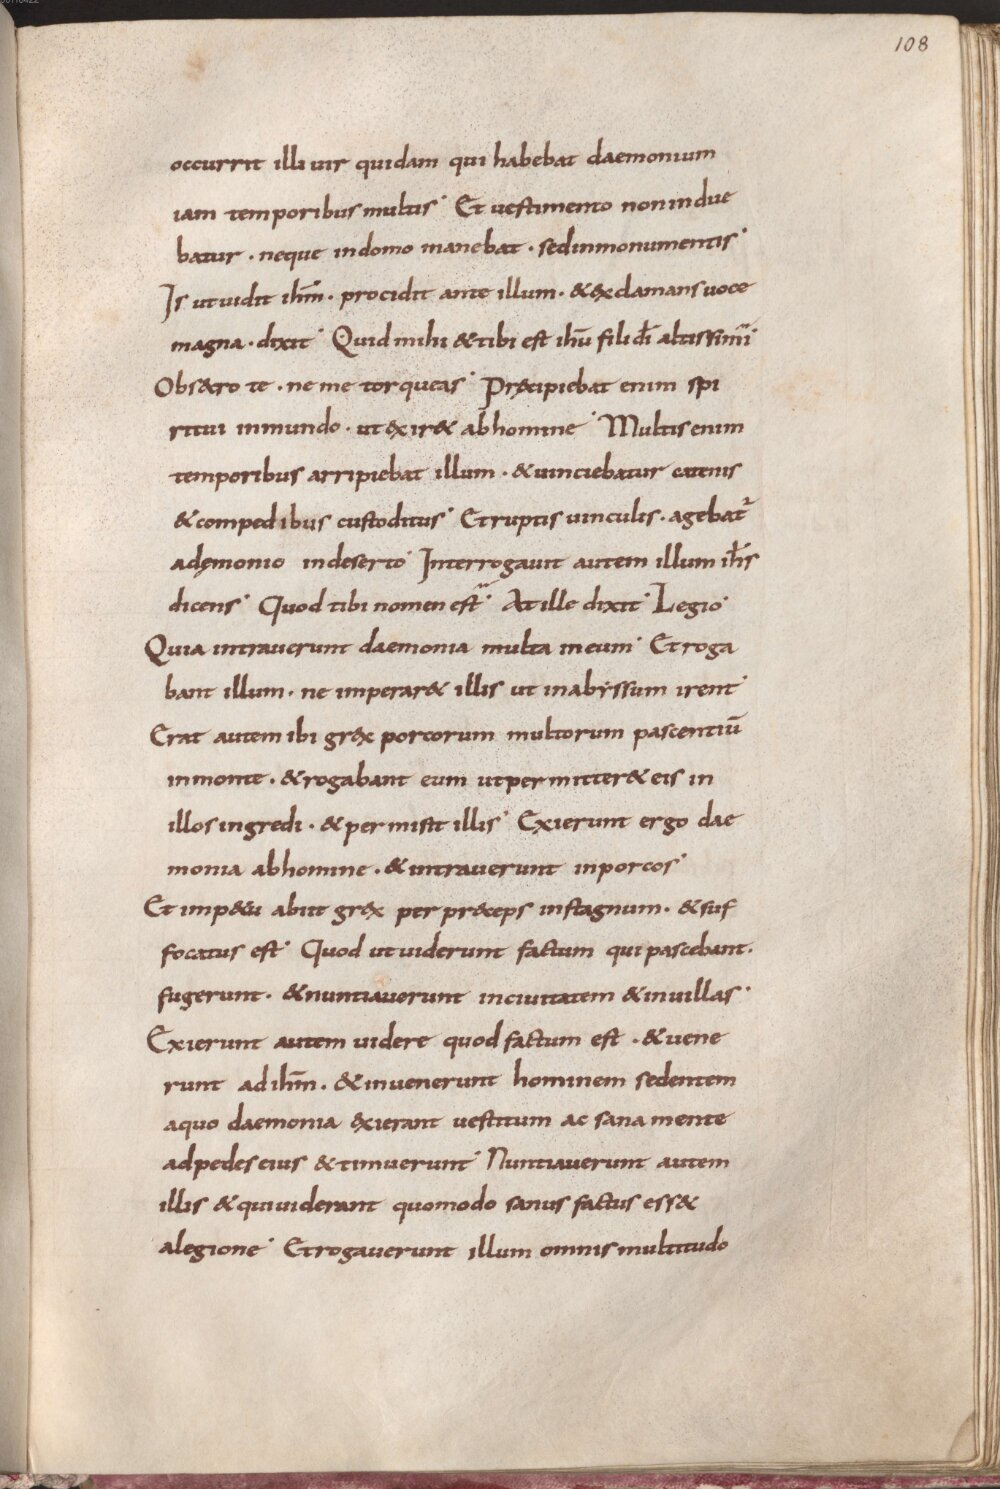 108
occurrit illi uir quidam qui habebat daemonium
iam temporibus multis· Et uestimento non indue
batur · neque in domo manebat · sed in monumentis·
Is ut uidit ihm̅ · procidit ante illum · & exclamans uoce
magna · dixit· Quid mihi & tibi est ihu̅ fili di̅ altissimi·
Obsecro te · ne me torqueas· Pręcipiebat enim spi
ritui inmundo · ut exir& ab homine· Multis enim
temporibus arripiebat illum · & uinciebatur catenis
& compedibus custoditus· Et ruptis uinculis · agebat᷑
a dęmonio in deserto· Interrogauit autem illum ihs̅
dicens· Quod tibi nomen est· At ille dixit· Legio·
Quia intrauerunt daemonia multa in eum· Et roga
bant illum · ne imperar& illis ut in abyssum irent·
Erat autem ibi grex porcorum multorum pascentiu̅
in monte · & rogabant eum ut permitter& eis in
illos ingredi · & permisit illis· Exierunt ergo dae
monia ab homine · & intrauerunt in porcos·
Et imp&u abiit grex per pręceps in stagnum · & suf
focatus est· Quod ut uiderunt factum qui pascebant ·
fugerunt · & nuntiauerunt in ciuitatem & in uillas·
Exierunt autem uidere quod factum est · & uene
runt ad ihm̅ · & inuenerunt hominem sedentem
a quo daemonia exierant uestitum ac sana mente
ad pedes eius & timuerunt· Nuntiauerunt autem
illis & qui uiderant quomodo sanus factus ess&
a legione· Et rogauerunt illum omnis multitudo